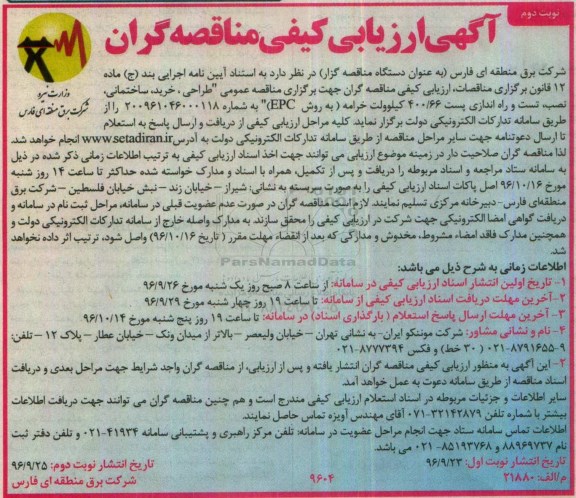 نوبت دوم
آگهی ارزیابی کیفی مناقصه گران
وزارت نیرو
شرکت برق منطقه ای فارس
شرکت برق منطقه ای فارس (به عنوان دستگاه مناقصه گزار) در نظر دارد به استناد آیین نامه اجرایی بند (ج) ماده
۱۲ قانون برگزاری مناقصات، ارزیابی کیفی مناقصه گران جهت برگزاری مناقصه عمومی "طراحی، خرید، ساختمانی،
نصب، تست و راه اندازی پست ۴۰۰/۶۶ کیلوولت خرامه (به روش EPC)" به شماره ۲۰۰۹۶۱۰۴۶۰۰۰۱۱۸ را از
طریق سامانه تدارکات الکترونیکی دولت برگزار نماید. کلیه مراحل ارزیابی کیفی از دریافت و ارسال پاسخ به استعلام
تا ارسال دعوتنامه جهت سایر مراحل مناقصه از طریق سامانه تدارکات الکترونیکی دولت به آدرس www.setadiran.ir انجام خواهد شد.
لذا مناقصه گران صلاحیت دار در زمینه موضوع ارزیابی می توانند جهت اخذ اسناد ارزیابی کیفی به ترتیب اطلاعات زمانی ذکر شده در ذیل
به سامانه ستاد مراجعه و اسناد مربوطه را دریافت و پس از تکمیل، همراه با اسناد و مدارک خواسته شده حداکثر تا ساعت ۱۴ روز شنبه
مورخ ۹۶/۱۰/۱۶ اصل پاکات اسناد ارزیابی کیفی را به صورت سربسته به نشانی: شیراز - خیابان زند - نبش خیابان فلسطین - شرکت برق
منطقه‌ای فارس- دبیرخانه مرکزی تسلیم نمایند. لازم است مناقصه گران در صورت عدم عضویت قبلی در سامانه، مراحل ثبت نام در سامانه و
دریافت گواهی امضا الکترونیکی جهت شرکت در ارزیابی کیفی را محقق سازند. به مدارک واصله خارج از سامانه تدارکات الکترونیکی دولت و
همچنین مدارک فاقد امضاء مشروط، مخدوش و مدارکی که بعد از انقضاء مهلت مقرر ( تاریخ ۹۶/۱۰/۱۶) واصل شود، ترتیب اثر داده نخواهد
شد.
ParsNamadData
اطلاعات زمانی به شرح ذیل می باشد:
۱- تاریخ اولین انتشار اسناد ارزیابی کیفی در سامانه: از ساعت ۸ صبح روز یک شنبه مورخ ۹۶/۹/۲۶
۲- آخرین مهلت دریافت اسناد ارزیابی کیفی از سامانه: تا ساعت ۱۹ روز چهار شنبه مورخ ۹۶/۹/۲۹
۳- آخرین مهلت ارسال پاسخ استعلام ( بارگذاری اسناد) در سامانه: تا ساعت ۱۹ روز پنج شنبه مورخ ۹۶/۱۰/۱۴
۴- نام و نشانی مشاور: شرکت موننکو ایران- به نشانی تهران - خیابان ولیعصر - بالاتر از میدان ونک - خیابان عطار - پلاک ۱۲ - تلفن:
۰۲۱-۸۷۹۱۶۵۵-۹ ( ۳۰ خط) و فکس ۸۷۷۷۳۹۴-۰۲۱
۲- این آگهی به منظور ارزیابی کیفی مناقصه گران انتشار یافته و پس از ارزیابی، از مناقصه گران واجد شرایط جهت مراحل بعدی و دریافت
اسناد مناقصه از طریق سامانه دعوت به عمل خواهد آمد.
سایر اطلاعات و جزئیات مربوطه در اسناد استعلام ارزیابی کیفی مندرج است و هم چنین مناقصه گران می توانند جهت دریافت اطلاعات
بیشتر با شماره تلفن ۳۲۱۴۲۸۷۹-۰۷۱ آقای مهندس آویزه تماس حاصل نمایند.
اطلاعات تماس سامانه ستاد جهت انجام مراحل عضویت در سامانه: تلفن مرکز راهبری و پشتیبانی سامانه ۴۱۹۳۴-۰۲۱ و تلفن دفتر ثبت
نام ۸۸۹۶۹۷۳۷ و ۸۵۱۹۳۷۶۸- ۰۲۱ می باشد.
تاریخ انتشار نوبت اول: ۹۶/۹/۲۳
تاریخ انتشار نوبت دوم: ۹۶/۹/۲۵
م/الف: ۲۱۸۸۰
۹۶۰۴
شرکت برق منطقه ای فارس